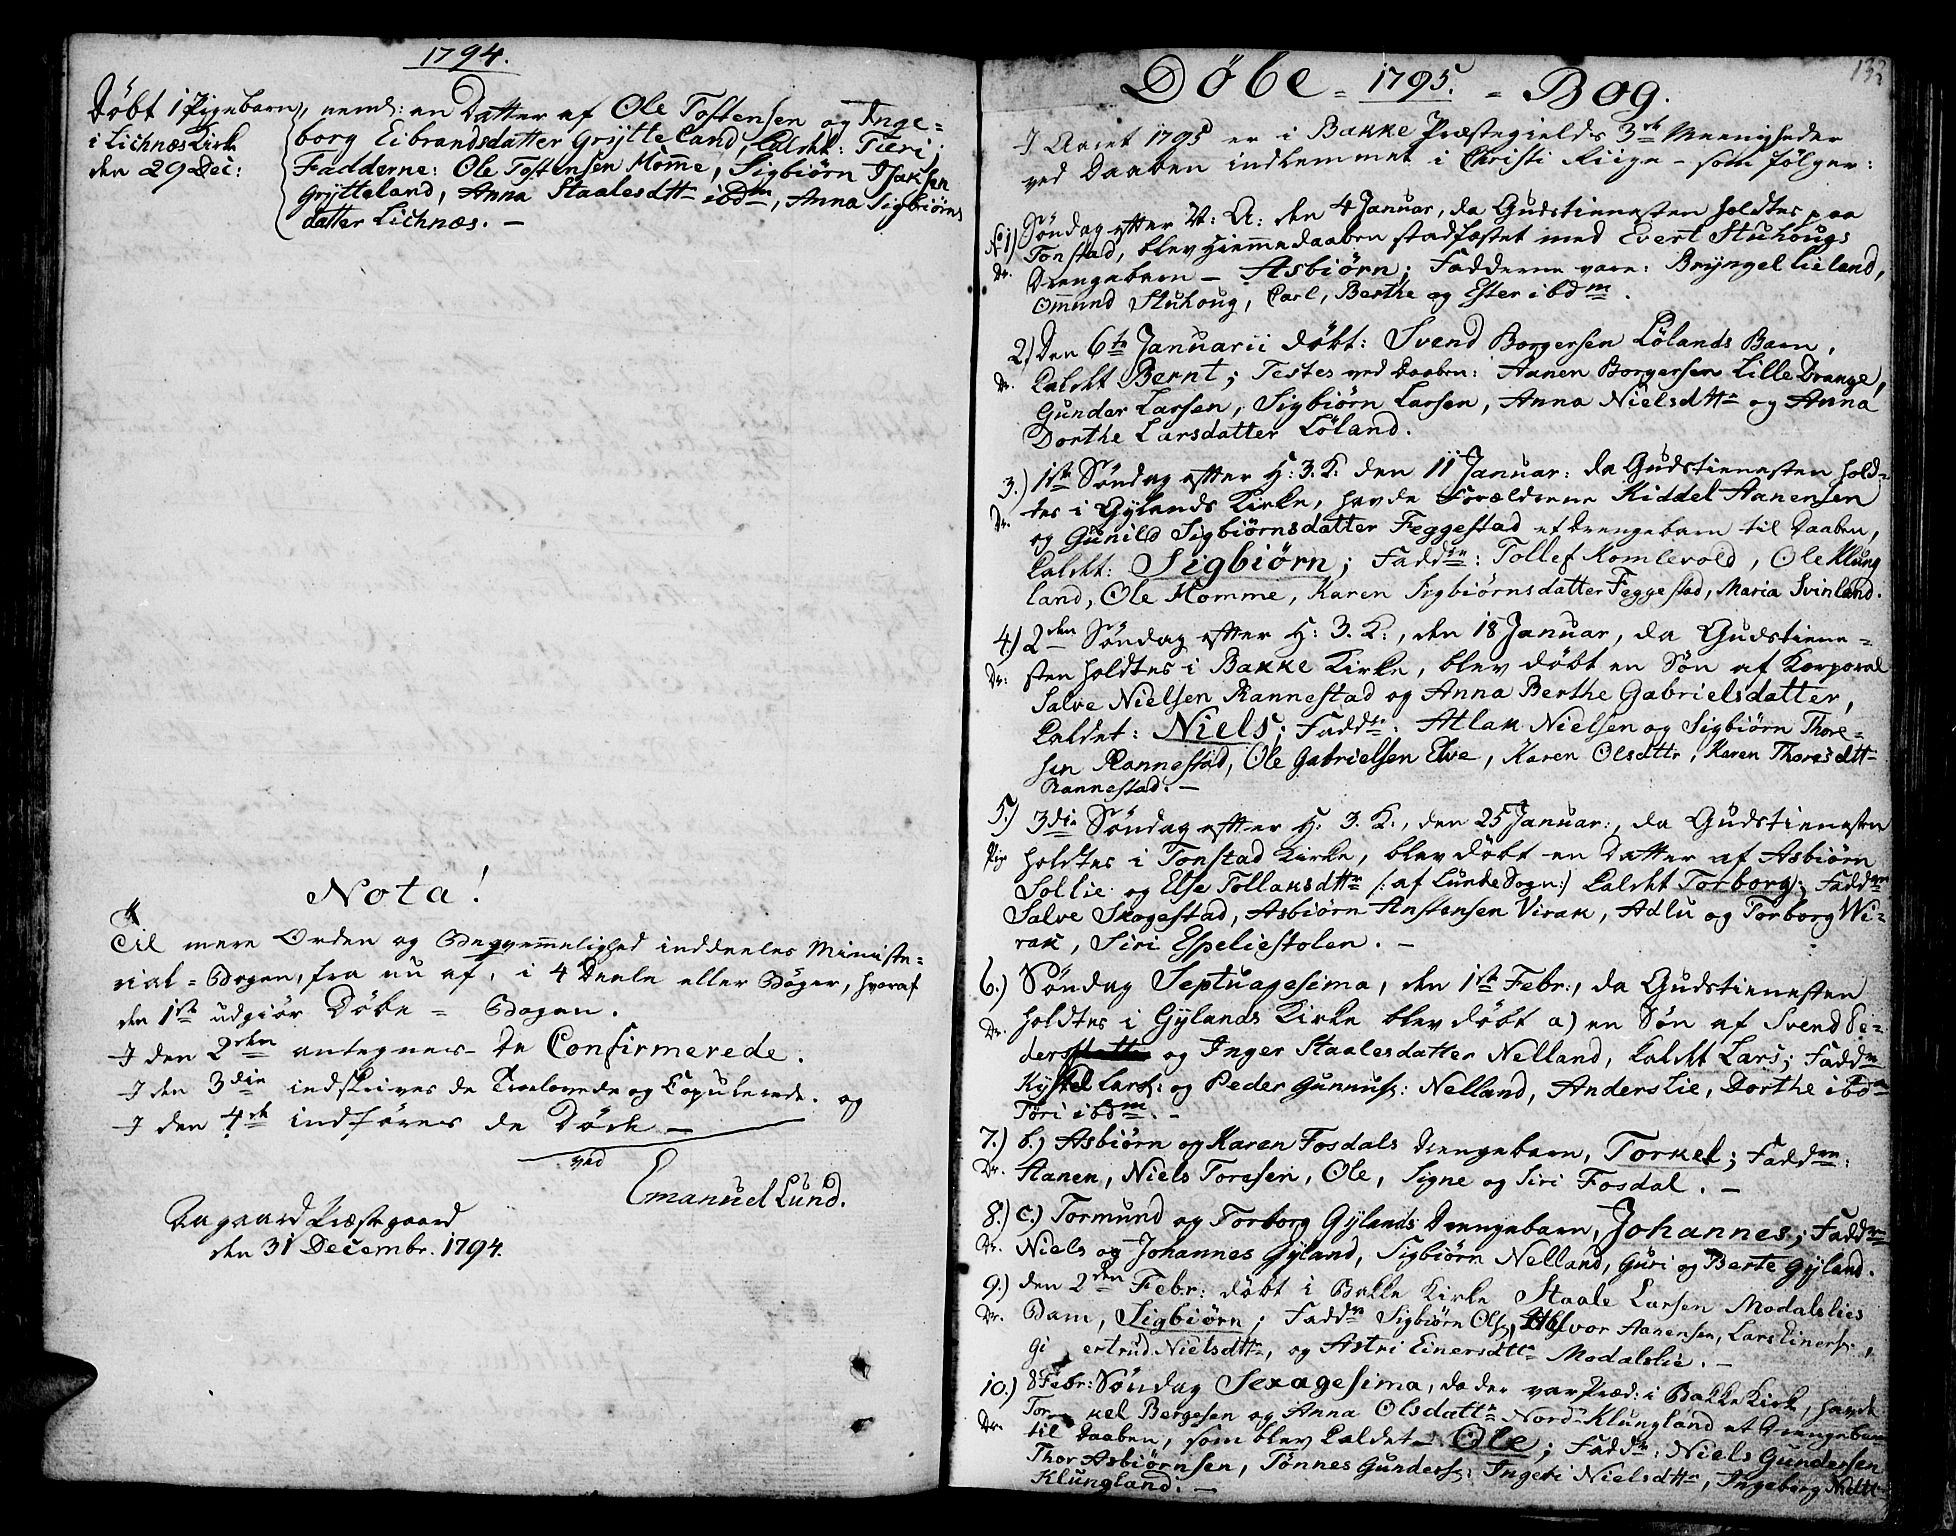 1794.
Døbt 1 Pigebarn, neml: en Datter af Ole Tostensen og Inge=
i Lichnæs Kirk
borg Eibrandsdatter Grÿtteland, kaldet: Tieri;
den 29 Dec:
Fadderne: Ole Tostensen Momme, Sigbiørn Isaksen
Grÿtteland, Anna Staalesdttr ibdm, Anna Sigbiørns
datter Lichnæs. —
Nota!
Til mere Orden og Beqvemmelighed inddeeles Ministe=
rial=Bogen, fra nu af, i 4 Deele eller Bøger, hvoraf
den 1ste udgiør Døbe = Bogen.
I den 2den antegnes de Confirmerede.
I den 3die indskrives de Troelovede og Copulerede. og
I den 4de indføres de Døde —
ved
Emanuel Lund.
Aagaard Præstegaard
den 31 Decembr. 1794.
133
Døbe = 1795. = Bog.
I Aaret 1795 er i Bakke Præstegields 3de Meenigheder
ved Daaben indlemmet i Christi Riige - som følger:
No 1) Søndag efter N: A: den 4 Januar, da Gudstienesten holdtes paa
Tonstad, blev Hiemmedaaben stadfæstet med Evert Stuhougs
Dr. Drengebarn — Asbiørn; Fadderne vare: Brÿngel Lieland,
Ommund Stuhoug, Carl, Berthe og Ester ibdm.
2) Den 6te Januarii døbt: Svend Borgersen Lølands Barn,
Dr. kaldet Bernt; Testes ved Daaben: Aanen Borgersen Lille Drange,
Gunder Larsen, Sigbiørn Larsen, Anna Nielsdttr og Anna
Dorthe Larsdatter Løland.
3.) 1ste Søndag efter H: 3. K: den 11 Januar: da Gudstienesten hold=
Dr. tes i Gÿlands Kirke, havde Forældrene Kiddel Aanensen
og Gunild Sigbiørnsdatter Feggestad et Drengebarn til Daaben,
kaldet: Sigbiørn; Faddrn: Tollef Romlevold, Ole Klung
land, Ole Momme, Karen Sigbiørnsdatter Feggestad, Maria Svinland.
4.) 2den Søndag efter H: 3. K:, den 18 Januar, da Gudstiene=
Dr: sten holdtes i Bakke Kirke, blev døbt en Søn af Korporal
Salve Nielsen Rannestad og Anna Berthe Gabrielsdatter,
kaldet: Niels; Faddrn: Atlak Nielsen og Sigbiørn Thore=
sen Rannestad, Ole Gabrielsen Elve, Karen Olsdttr, Karen Thoresdttr
Rannestad. —
5.) 3die Søndag efter H: 3. K:, den 25 Januar:, da Gudstienesten
Pig. holdtes i Tonstad Kirke, blev døbt en Datter af Asbiørn
Sollie og Else Tollaksdttr (: af Lunde Sogn:) kaldet Torborg; Faddrn
Salve Skogestad, Asbiørn Anstensen Virak, Adlu og Torborg Wi=
rak, Siri Espeliestolen. —
6.) Søndag Septuagesima, den 1ste Febr:, da Gudstienesten
Dr. holdtes i Gÿlands Kirke blev døbt a) en Søn af Svend Pe=
ders og Inger Staalesdatter Nelland, kaldet Lars; Faddrn
Kÿstel Lars: og Peder Gunnufs: Nelland, Anders Lie, Dorthe ibdm
Tøri ibdm. —
7.) b.) Asbiørn og Karen Fosdals Drengebarn, Torkel; Faddrn:
Dr. Aanen, Niels Toresen, Ole, Signe og Siri Fosdal. —
8.) c.) Tormund og Torborg Gÿlands Drengebarn, Johannes; Faddrn
Dr. Niels og Johannes Gÿland, Sigbiørn Nelland, Guri og Berte Gÿland.
9.) den 2den Febr: døbt i Bakke Kirke Staale Larsen Modalslies
Dr. Barn, Sigbiørn; Faddrn Sigbiørn Ols, Halvor Aanensen, Lars Einers:,
Gi ertrud Nielsdttr, og Astri Einersdttr Modalslie. —
10.) 8 Febr: Søndag Sexagesima, da der var Præd: i Bakke Kirk, havde
Tor kel Bergesen og Anna Olsdattr Nord-Klungland et Drengebarn
Dr. til Daaben, som blev kaldet — Ole; Faddrn: Niels Gundersen
Thor Asbiørnsen, Tønnes Gunders: Ingeri Nielsdttr, Ingeborg
Klungland. —